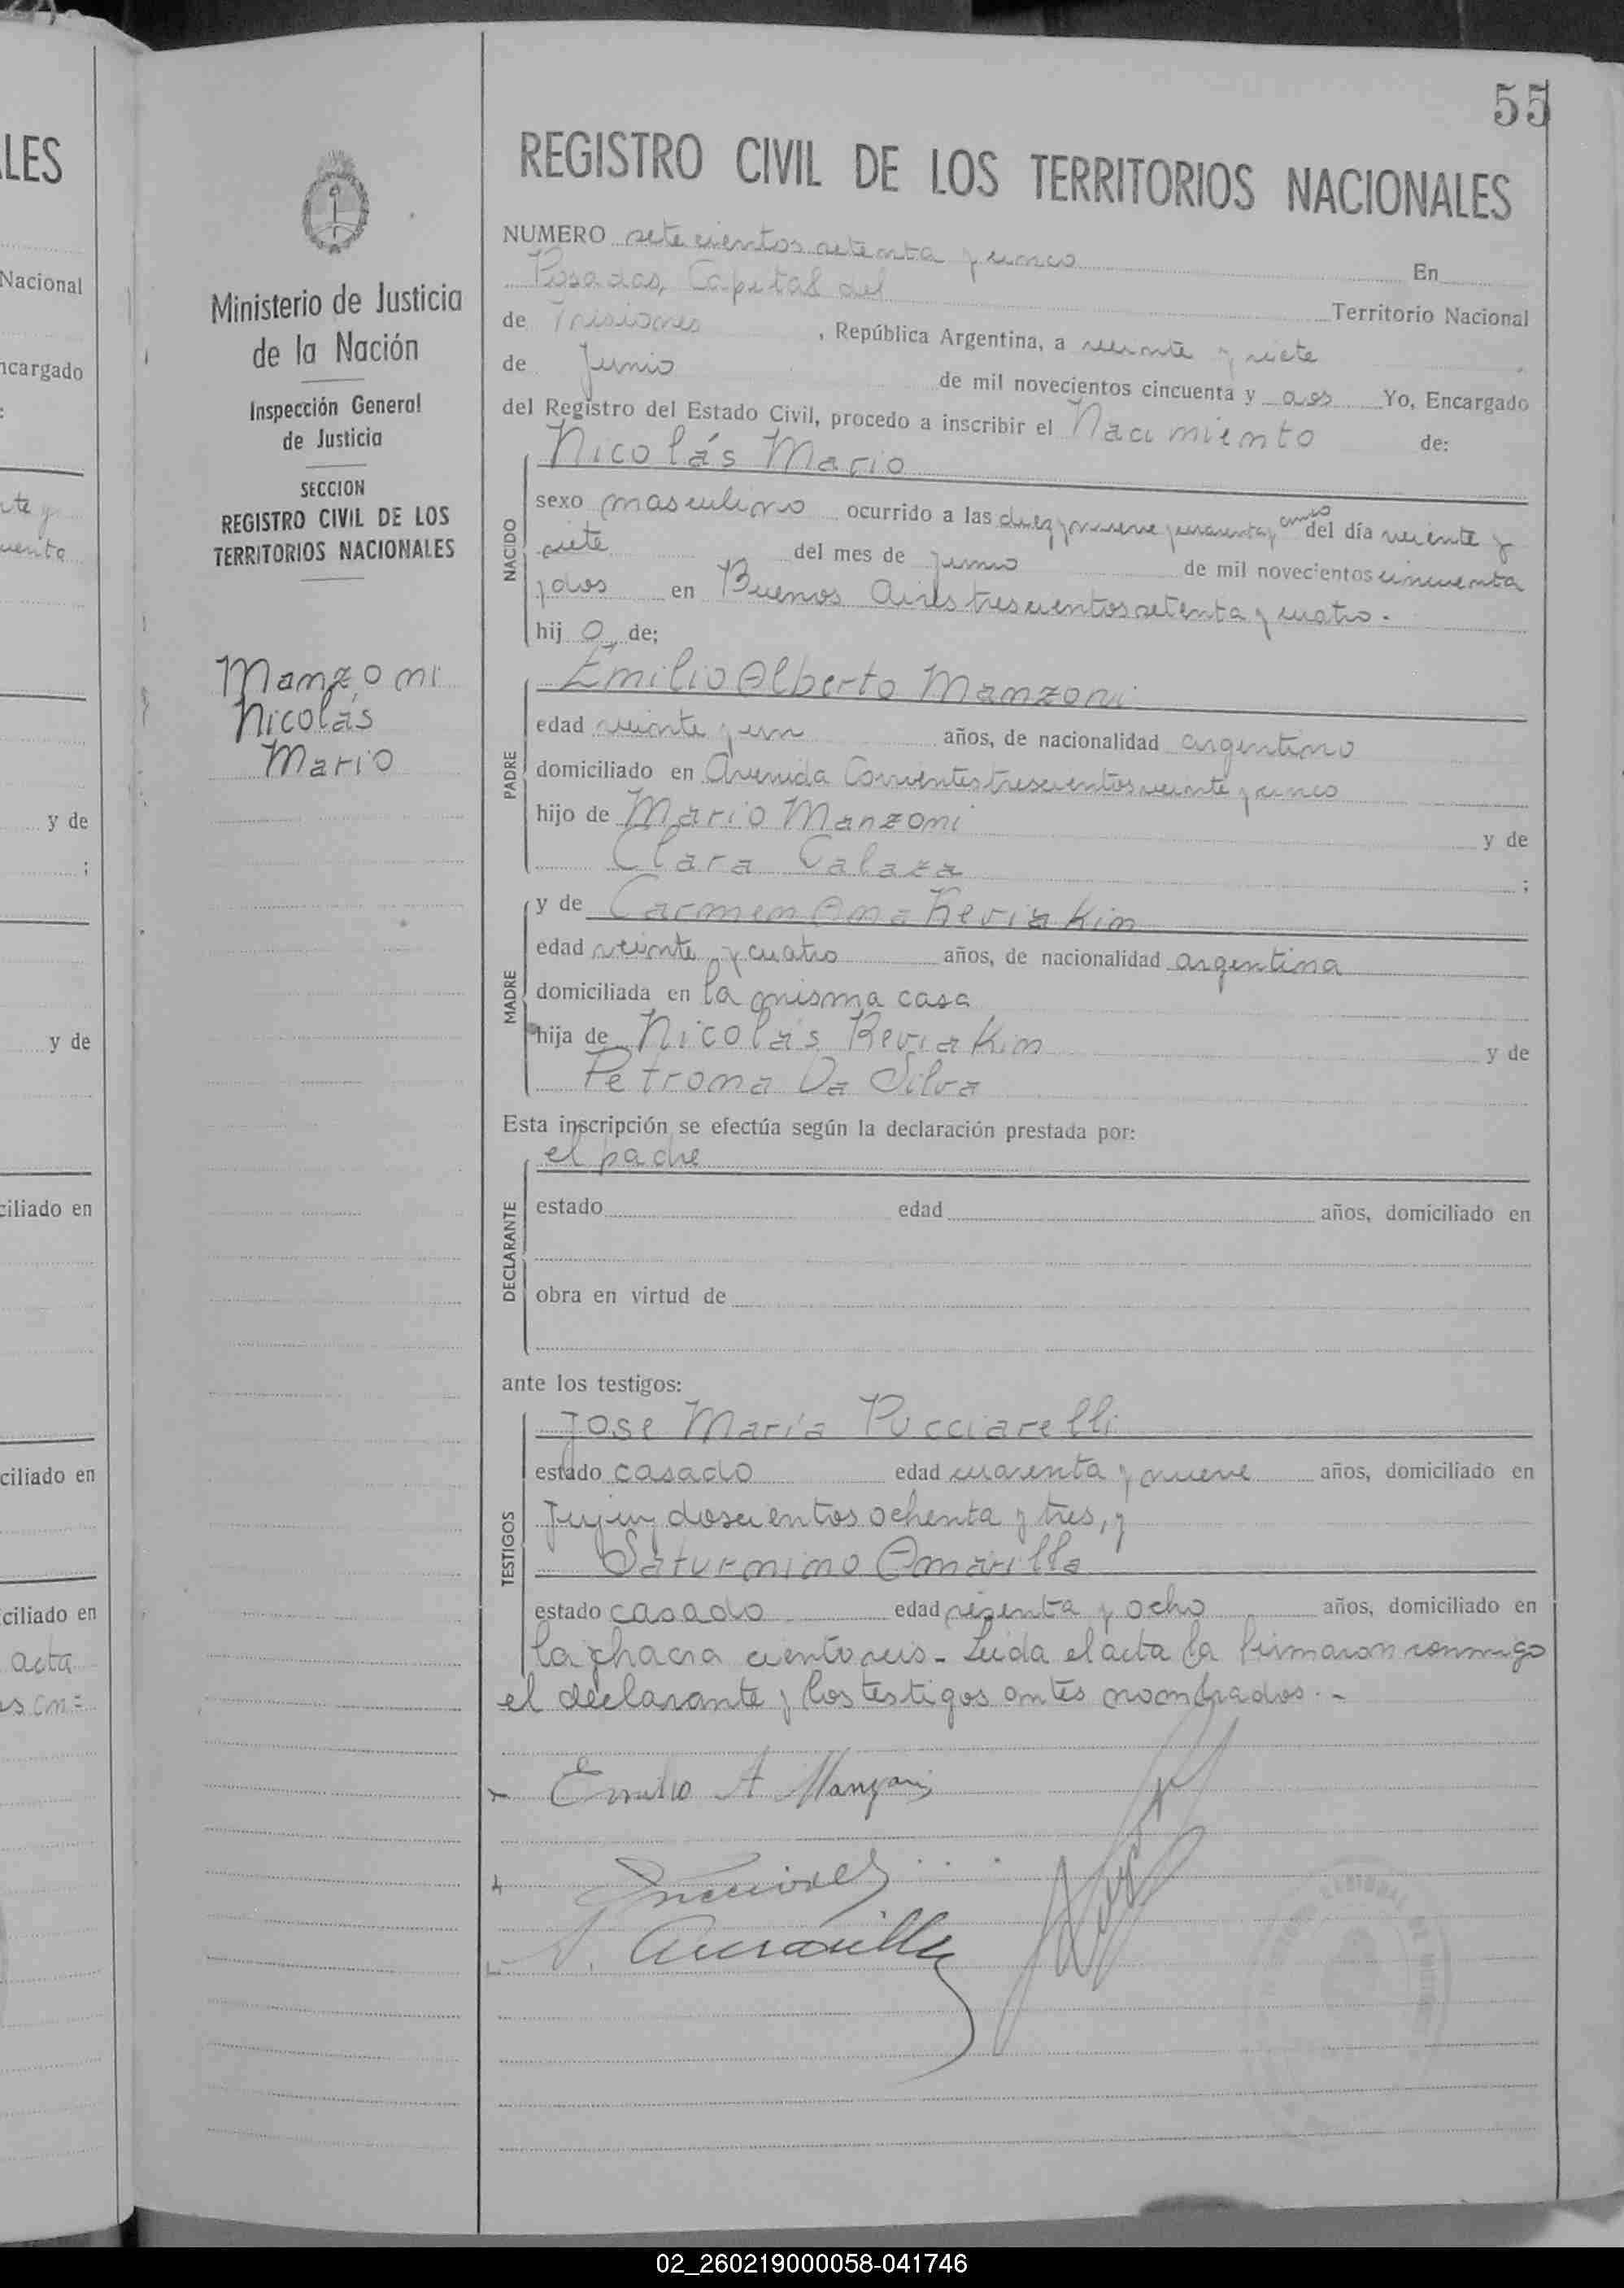 55
REGISTRO CIVIL DE LOS TERRITORIOS NACIONALES
NUMERO setecientos setenta y cinco En
Posadas, Capital del Territorio Nacional
de Misiones, República Argentina, a veinte y siete
de Junio de mil novecientos cincuenta y dos Yo, Encargado
del Registro del Estado Civil, procedo a inscribir el Nacimiento de:
Nicolás Mario
NACIDO
sexo masculino ocurrido a las diez y nueve y cuarenta y cinco del día veinte y
siete del mes de junio de mil novecientos cincuenta
y dos en Buenos Aires trescientos setenta y cuatro.
hijo de;
Emilio Alberto Manzoni
PADRE
edad veinte y un años, de nacionalidad argentino
domiciliado en Avenida Corrientes trescientos veinte y cinco
hijo de Mario Manzoni y de
Clara Calaza ;
y de Carmen Ana Reviakin
MADRE
edad veinte y cuatro años, de nacionalidad argentina
domiciliada en la misma casa
hija de Nicolás Reviakin y de
Petrona Da Silva
Esta inscripción se efectúa según la declaración prestada por:
el padre
DECLARANTE
estado edad años, domiciliado en
obra en virtud de
ante los testigos:
Jose María Pucciarelli
TESTIGOS
estado casado edad cuarenta y nueve años, domiciliado en
Jujuy doscientos ochenta y tres, y
Saturnino Amarilla
estado casado edad sesenta y ocho años, domiciliado en
la chacra ciento seis - Leida el acta la firmaron conmigo
el declarante y los testigos antes nombrados. -
Emilio A Manzoni
Amarilla
Ministerio de Justicia
de la Nación
Inspección General
de Justicia
SECCION
REGISTRO CIVIL DE LOS
TERRITORIOS NACIONALES
Manzoni
Nicolás
Mario
LES
Nacional
ncargado
y de
;
y de
ciliado en
ciliado en
ciliado en
acta
02_260219000058-041746